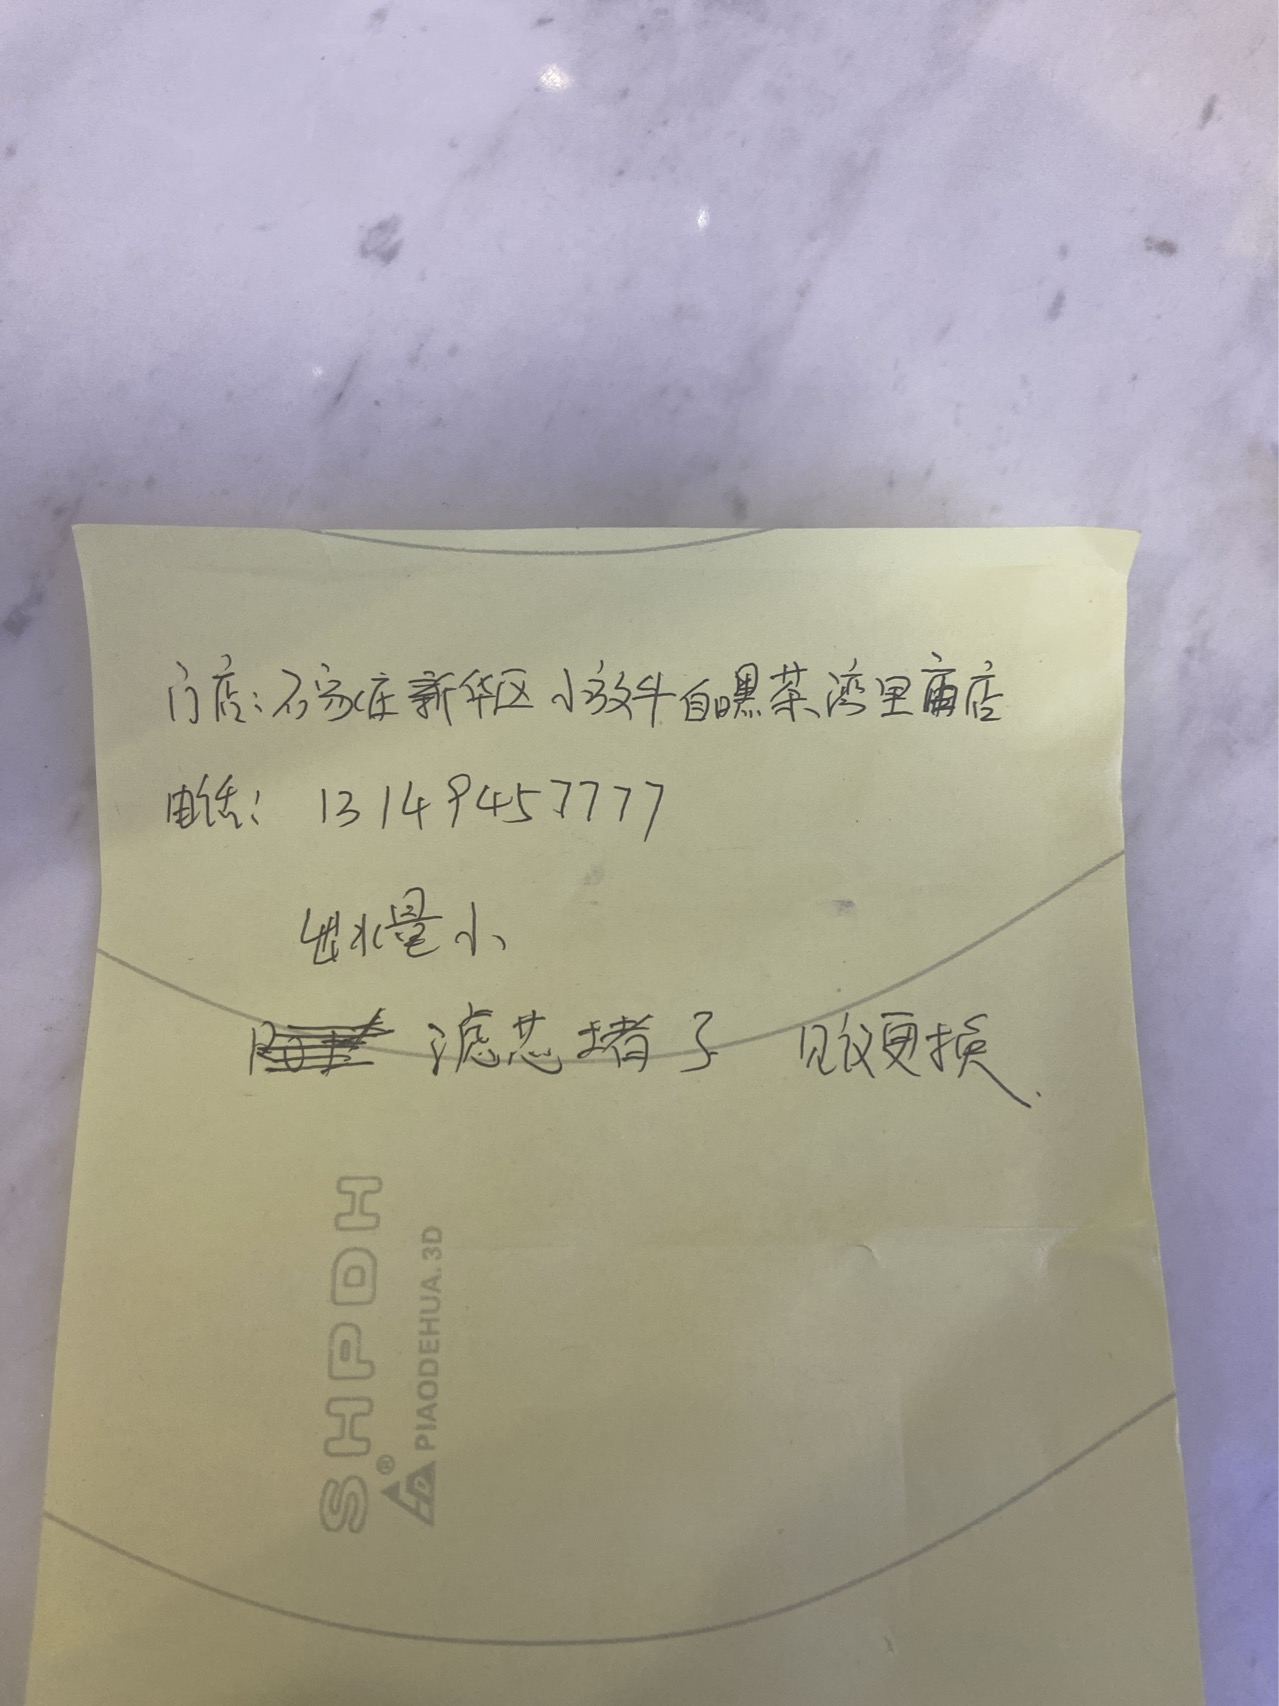 门店：石家庄新华区小放牛自嘿茶湾里庙店
电话：13149457777
出水量小
滤芯堵了 见议更换.
SHPDH
®
PIAODEHUA.3D